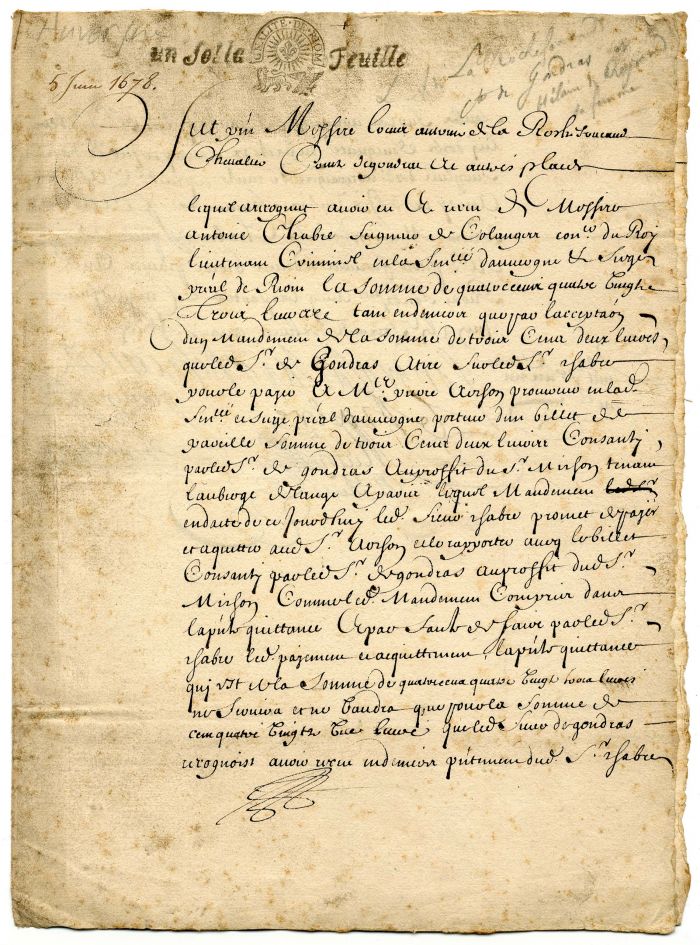 Auvergne
un solle Feuille
GENALITE DE RIOM
5 Juin 1678.
La Rochefoucauld
Cte de Gondras et
Hilaire
sa femme
Fut pnt Messire Louis antoine de la Rochefoucaud
Chevalier Comte de gondras et autres places
lequel a recognut avoir eu et receu de Messire
antoine Chabre Seigneur de Colanger coner du Roy
lieutenant Criminel en la Sencée dauvergne & Siege
prãl de Riom la somme de quatre cent quatre vingtz
Trois livres tant en denier que par lacceptaõn
dun Mandement de la somme de trois Cent deux livres
que led Sr de Gondras A tiré sur led Sr chabre
pour le payer A Me pierre procureur en lad
Sencée et siege prãl dauvergne porteur dun billet de
pareille somme de trois Cent deux livres Consanti
par led Sr de gondras Au proffit du Sr Michon tenant
lauberge de lange A paris lequel Mandement led Sr
en datte de ce Jourdhuy led Sieur chabre promet de payer
et aquitter aud Sr et le rapporter avec le billet
Consanti par led Sr de gondras au proffit dud Sr
Michon Comme led Mandement Comprins dans
la pñte quittance Et par faute de faire par led Sr
chabre led payement et acquittement, la pñte quittance
qui est de la somme de quatre cens quatre vingt trois livres
ne servira et ne vaudra que pour la somme de
cent quatre vingtz une livre que led Sieur de gondras
recognoist avoir receu en denier pñtement dud Sr chabre